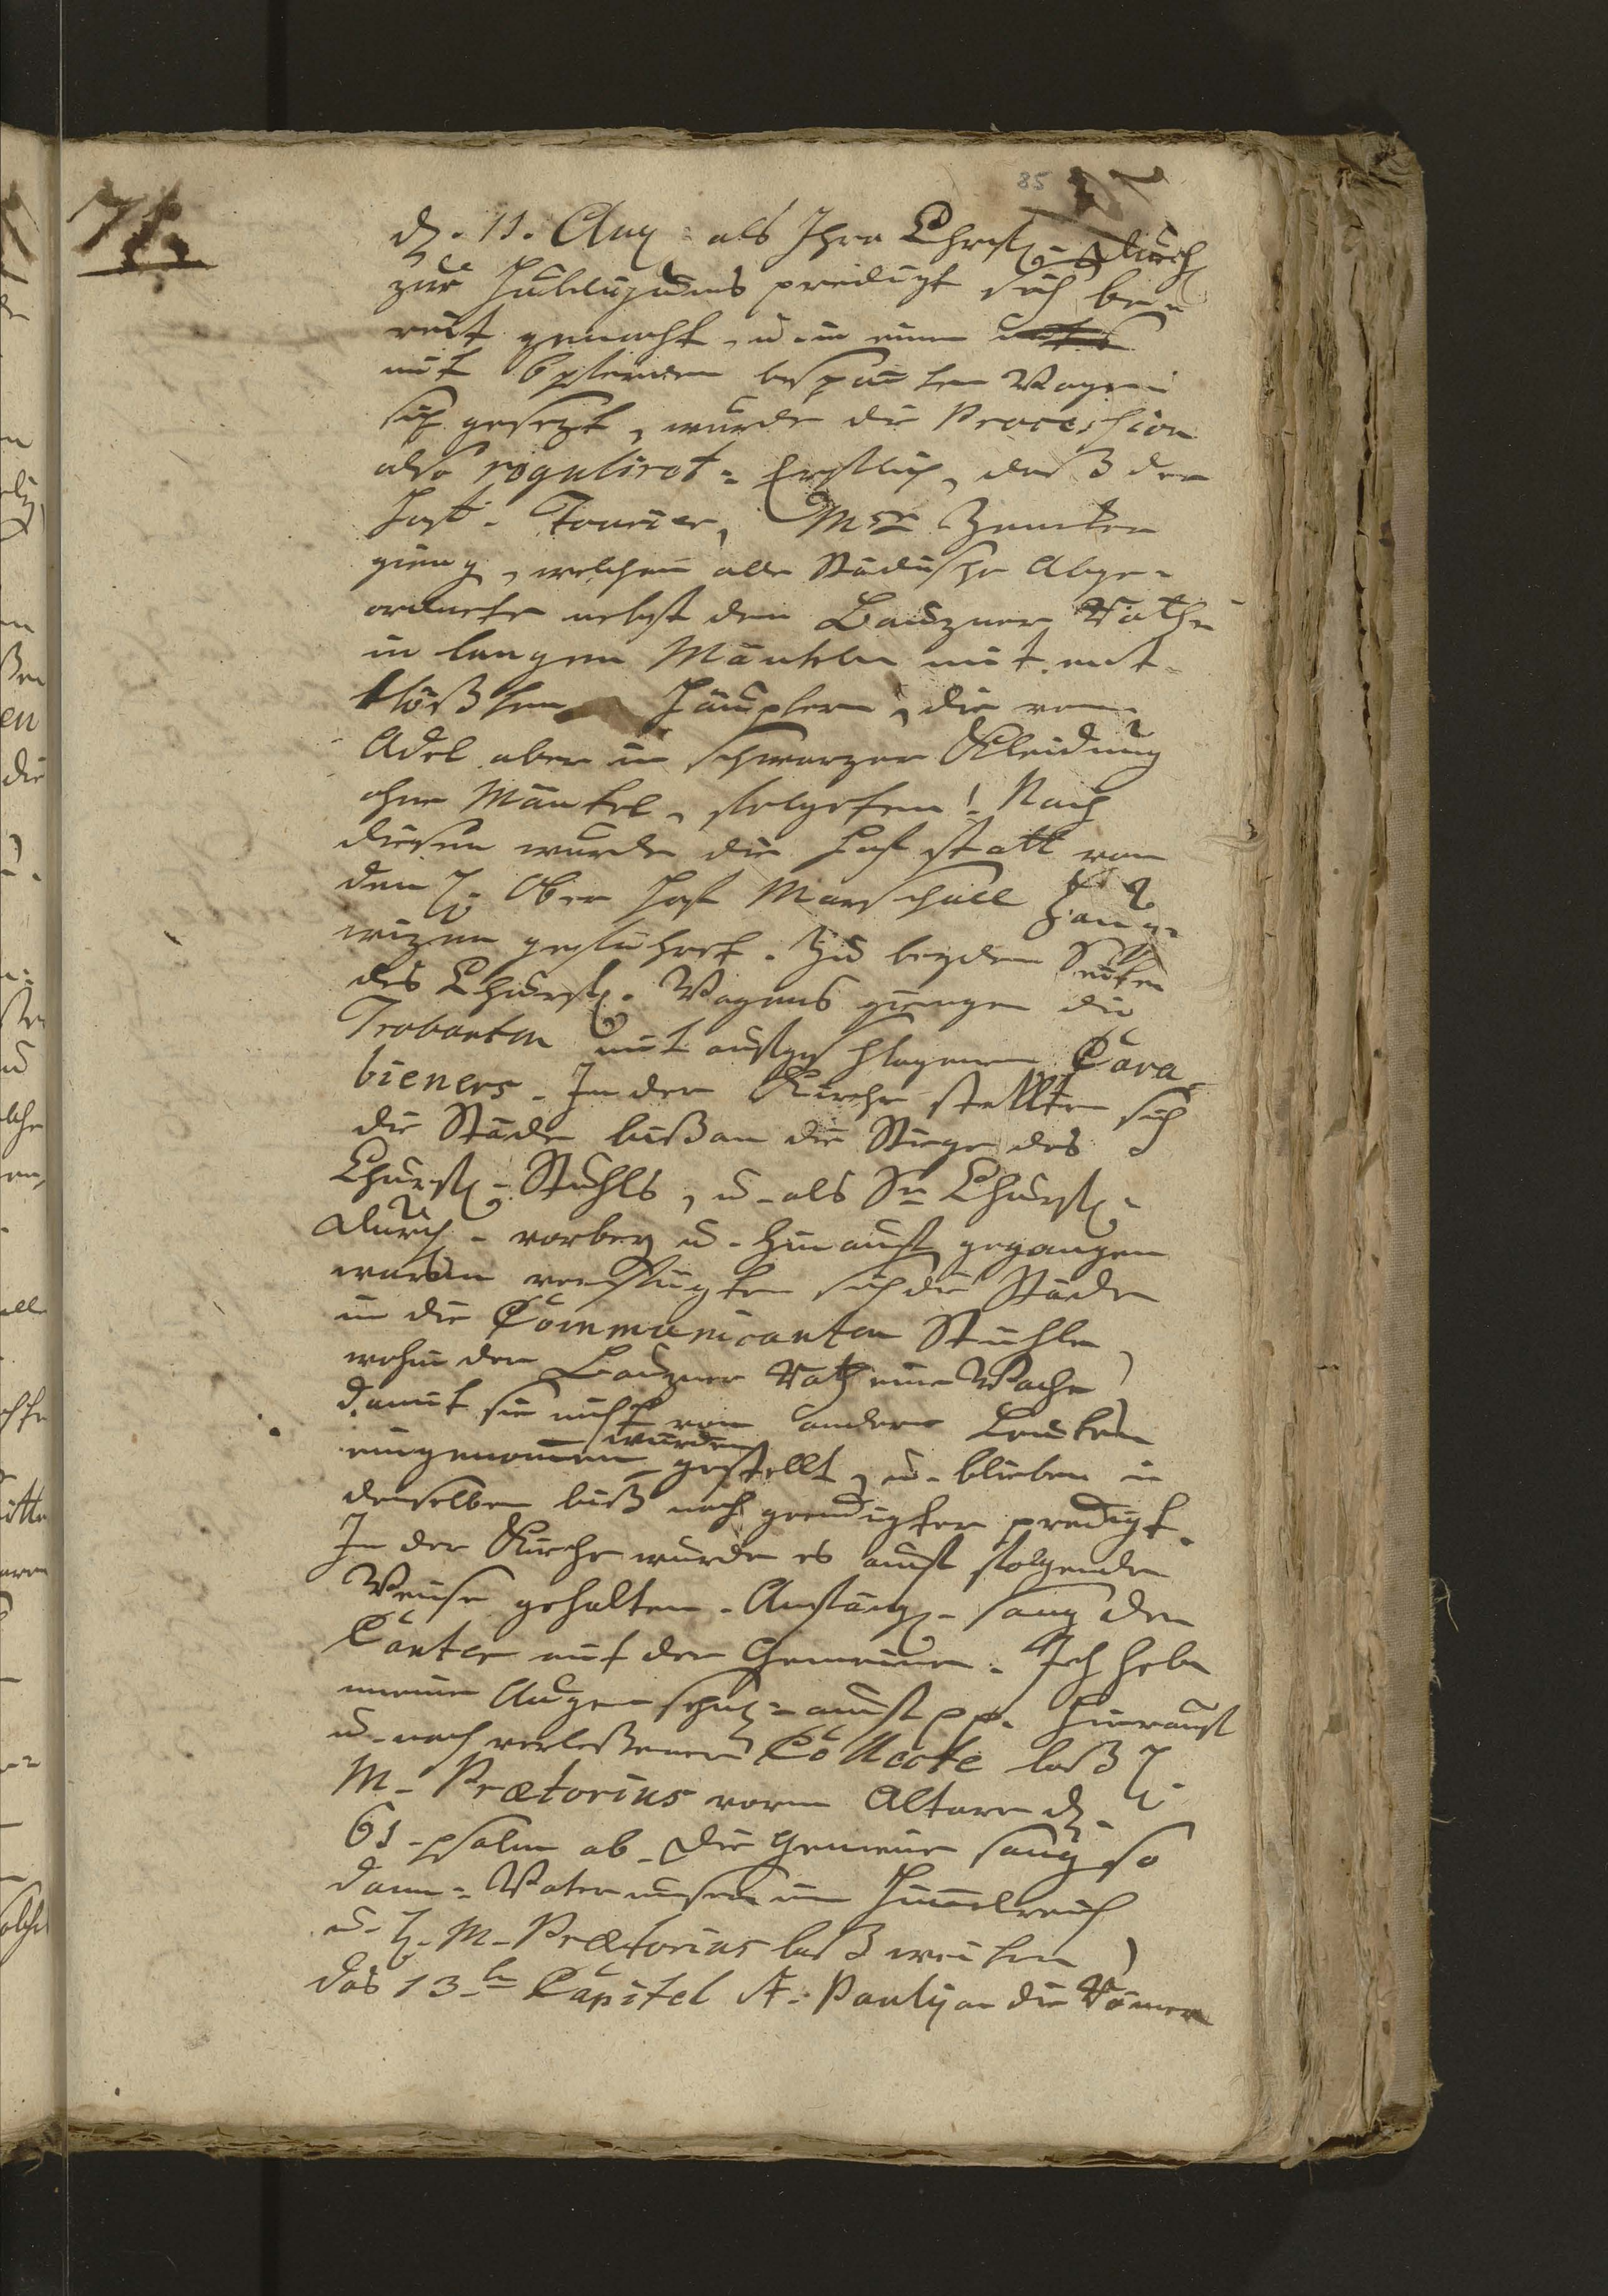 85
71.
d. 11. Aug: als Ihre Churfl. Durch
zur Huldigungs predigt sich be-
reit gemacht, u. in einen
mit 6 pferden bespanten Wagen
sich gesezt, wurde die Procession
also reguliret: Erstlich, daß der
Hof- Fourier, Mr
gieng, welchem alle Städtische Abge-
ordnete nebst dem Bauzner Rathe
in langen Mänteln mit ent-
blößten Häuptern, die vom
Adel aber in schwarzer Kleidung
ohne Mäntel, folgeten! Nach
diesen wurde die Hofstatt von
dem H. Ober Hof Marschall Haug-
wizen geführet. Zu beyden Seiten
des Churfl. Wagens giengen die
Trabanten mit aufgeschlagenen Cara
bieners. In der Kirche stellten sich
die Städte biß an die Stiege des
Churfl. Stuhls, u. als Sr Churfl.
Durch. vorbey u. hinauf gegangen
waren verfügten sich die Städte
in die Communicanten Stühle,
wohin der Bauzner Rath eine Wache,
damit sie nicht von andern Leuten
würden
eingenomen gestellt, u. blieben in
denselben biß nach geendigter predigt.
In der Kirche wurde es auf folgende
Weise gehalten. Anfängl. sang der
Cantor mit der Gemeine: Ich hebe
meine Augen sehnl. auf pp. hierauf
u. nach verleßener Collecte laß H.
M. Prætorius vorm Altare d.
61. psalm ab. Die Gemeine sang so
dann: Vater unser im Himelreich
u. H. M. Prætorius laß weiter,
das 13te Capitel St. Pauly an die Römer